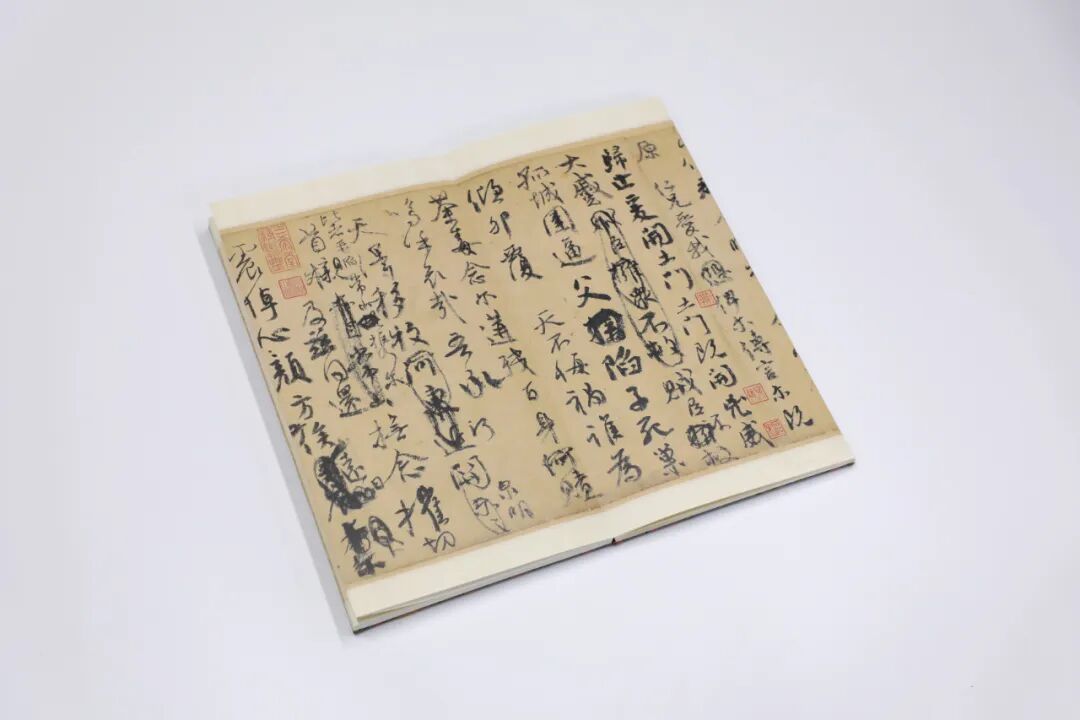 原仁兄愛我俾尔傳言尔既
歸止爰開土門土門既開凶威
大蹙賊臣擁衆不救賊臣不救
孤城圍逼父陷子死巢
傾卵覆天不悔禍誰為
荼毒念尔遘殘百身何贖
嗚乎哀哉吾承
天澤移牧河關泉明
比者再陷常山携尔
首櫬及兹同還撫念摧切
震悼心顏方俟遠日